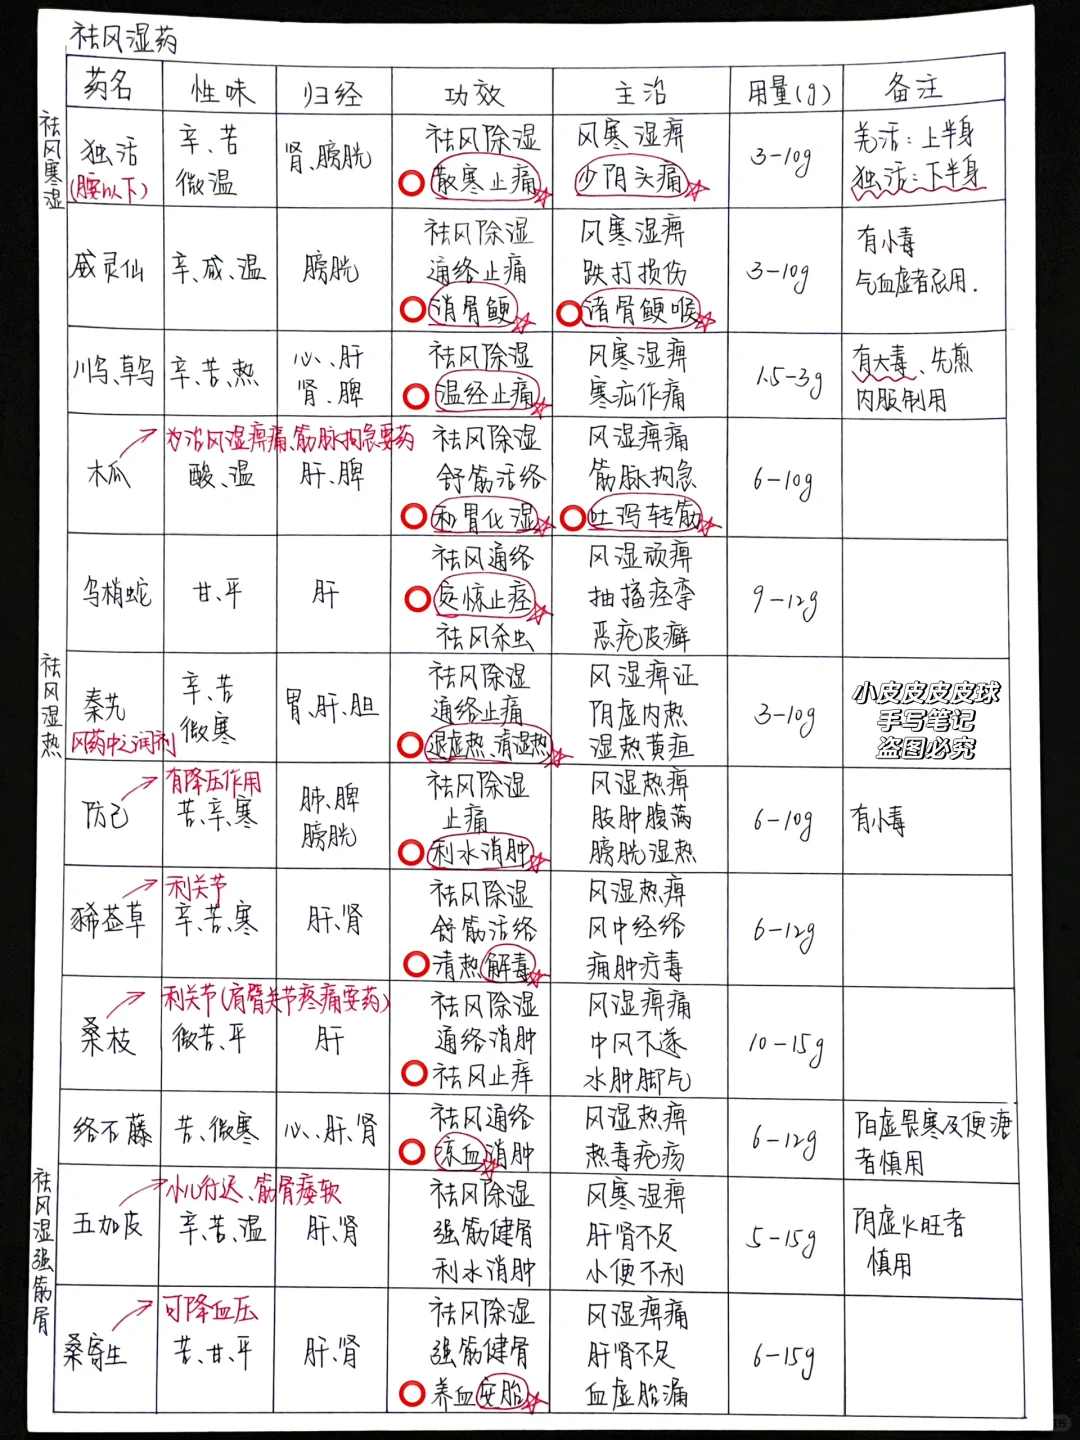 祛风湿药
药名 性味 归经 功效 主治 用量(g) 备注
祛风寒湿
独活
(腰以下)
辛、苦
微温
肾、膀胱
祛风除湿
散寒止痛
风寒湿痹
少阴头痛
3-10g
羌活：上半身
独活：下半身
威灵仙
辛、咸、温
膀胱
祛风除湿
通络止痛
消骨鲠
风寒湿痹
跌打损伤
诸骨鲠喉
3-10g
有小毒
气血虚者忌用.
川乌、草乌
辛、苦、热
心、肝
肾、脾
祛风除湿
温经止痛
风寒湿痹
寒疝作痛
1.5-3g
有大毒、先煎
内服制用
木瓜
为治风湿痹痛、筋脉拘急要药
酸、温
肝、脾
祛风除湿
舒筋活络
和胃化湿
风湿痹痛
筋脉拘急
吐泻转筋
6-10g
乌梢蛇
甘、平
肝
祛风通络
定惊止痉
祛风杀虫
风湿顽痹
抽搐痉挛
恶疮皮癣
9-12g
祛风湿热
秦艽
风药中之润剂
辛、苦
微寒
胃、肝、胆
祛风除湿
通络止痛
退虚热、清湿热
风湿痹证
阴虚内热
湿热黄疸
3-10g
小皮皮皮皮球
手写笔记
盗图必究
防己
有降压作用
苦、辛、寒
肺、脾
膀胱
祛风除湿
止痛
利水消肿
风湿热痹
肢肿腹满
膀胱湿热
6-10g
有小毒
豨莶草
利关节
辛、苦、寒
肝、肾
祛风除湿
舒筋活络
清热解毒
风湿热痹
风中经络
痈肿疔毒
6-12g
桑枝
利关节(肩臂关节疼痛要药)
微苦、平
肝
祛风除湿
通络消肿
祛风止痒
风湿痹痛
中风不遂
水肿脚气
10-15g
络石藤
苦、微寒
心、肝、肾
祛风通络
凉血消肿
风湿热痹
热毒疮疡
6-12g
阳虚畏寒及便溏
者慎用
祛风湿强筋骨
五加皮
小儿行迟、筋骨痿软
辛、苦、温
肝、肾
祛风除湿
强筋健骨
利水消肿
风寒湿痹
肝肾不足
小便不利
5-15g
阴虚火旺者
慎用
桑寄生
可降血压
苦、甘、平
肝、肾
祛风除湿
强筋健骨
养血安胎
风湿痹痛
肝肾不足
血虚胎漏
6-15g